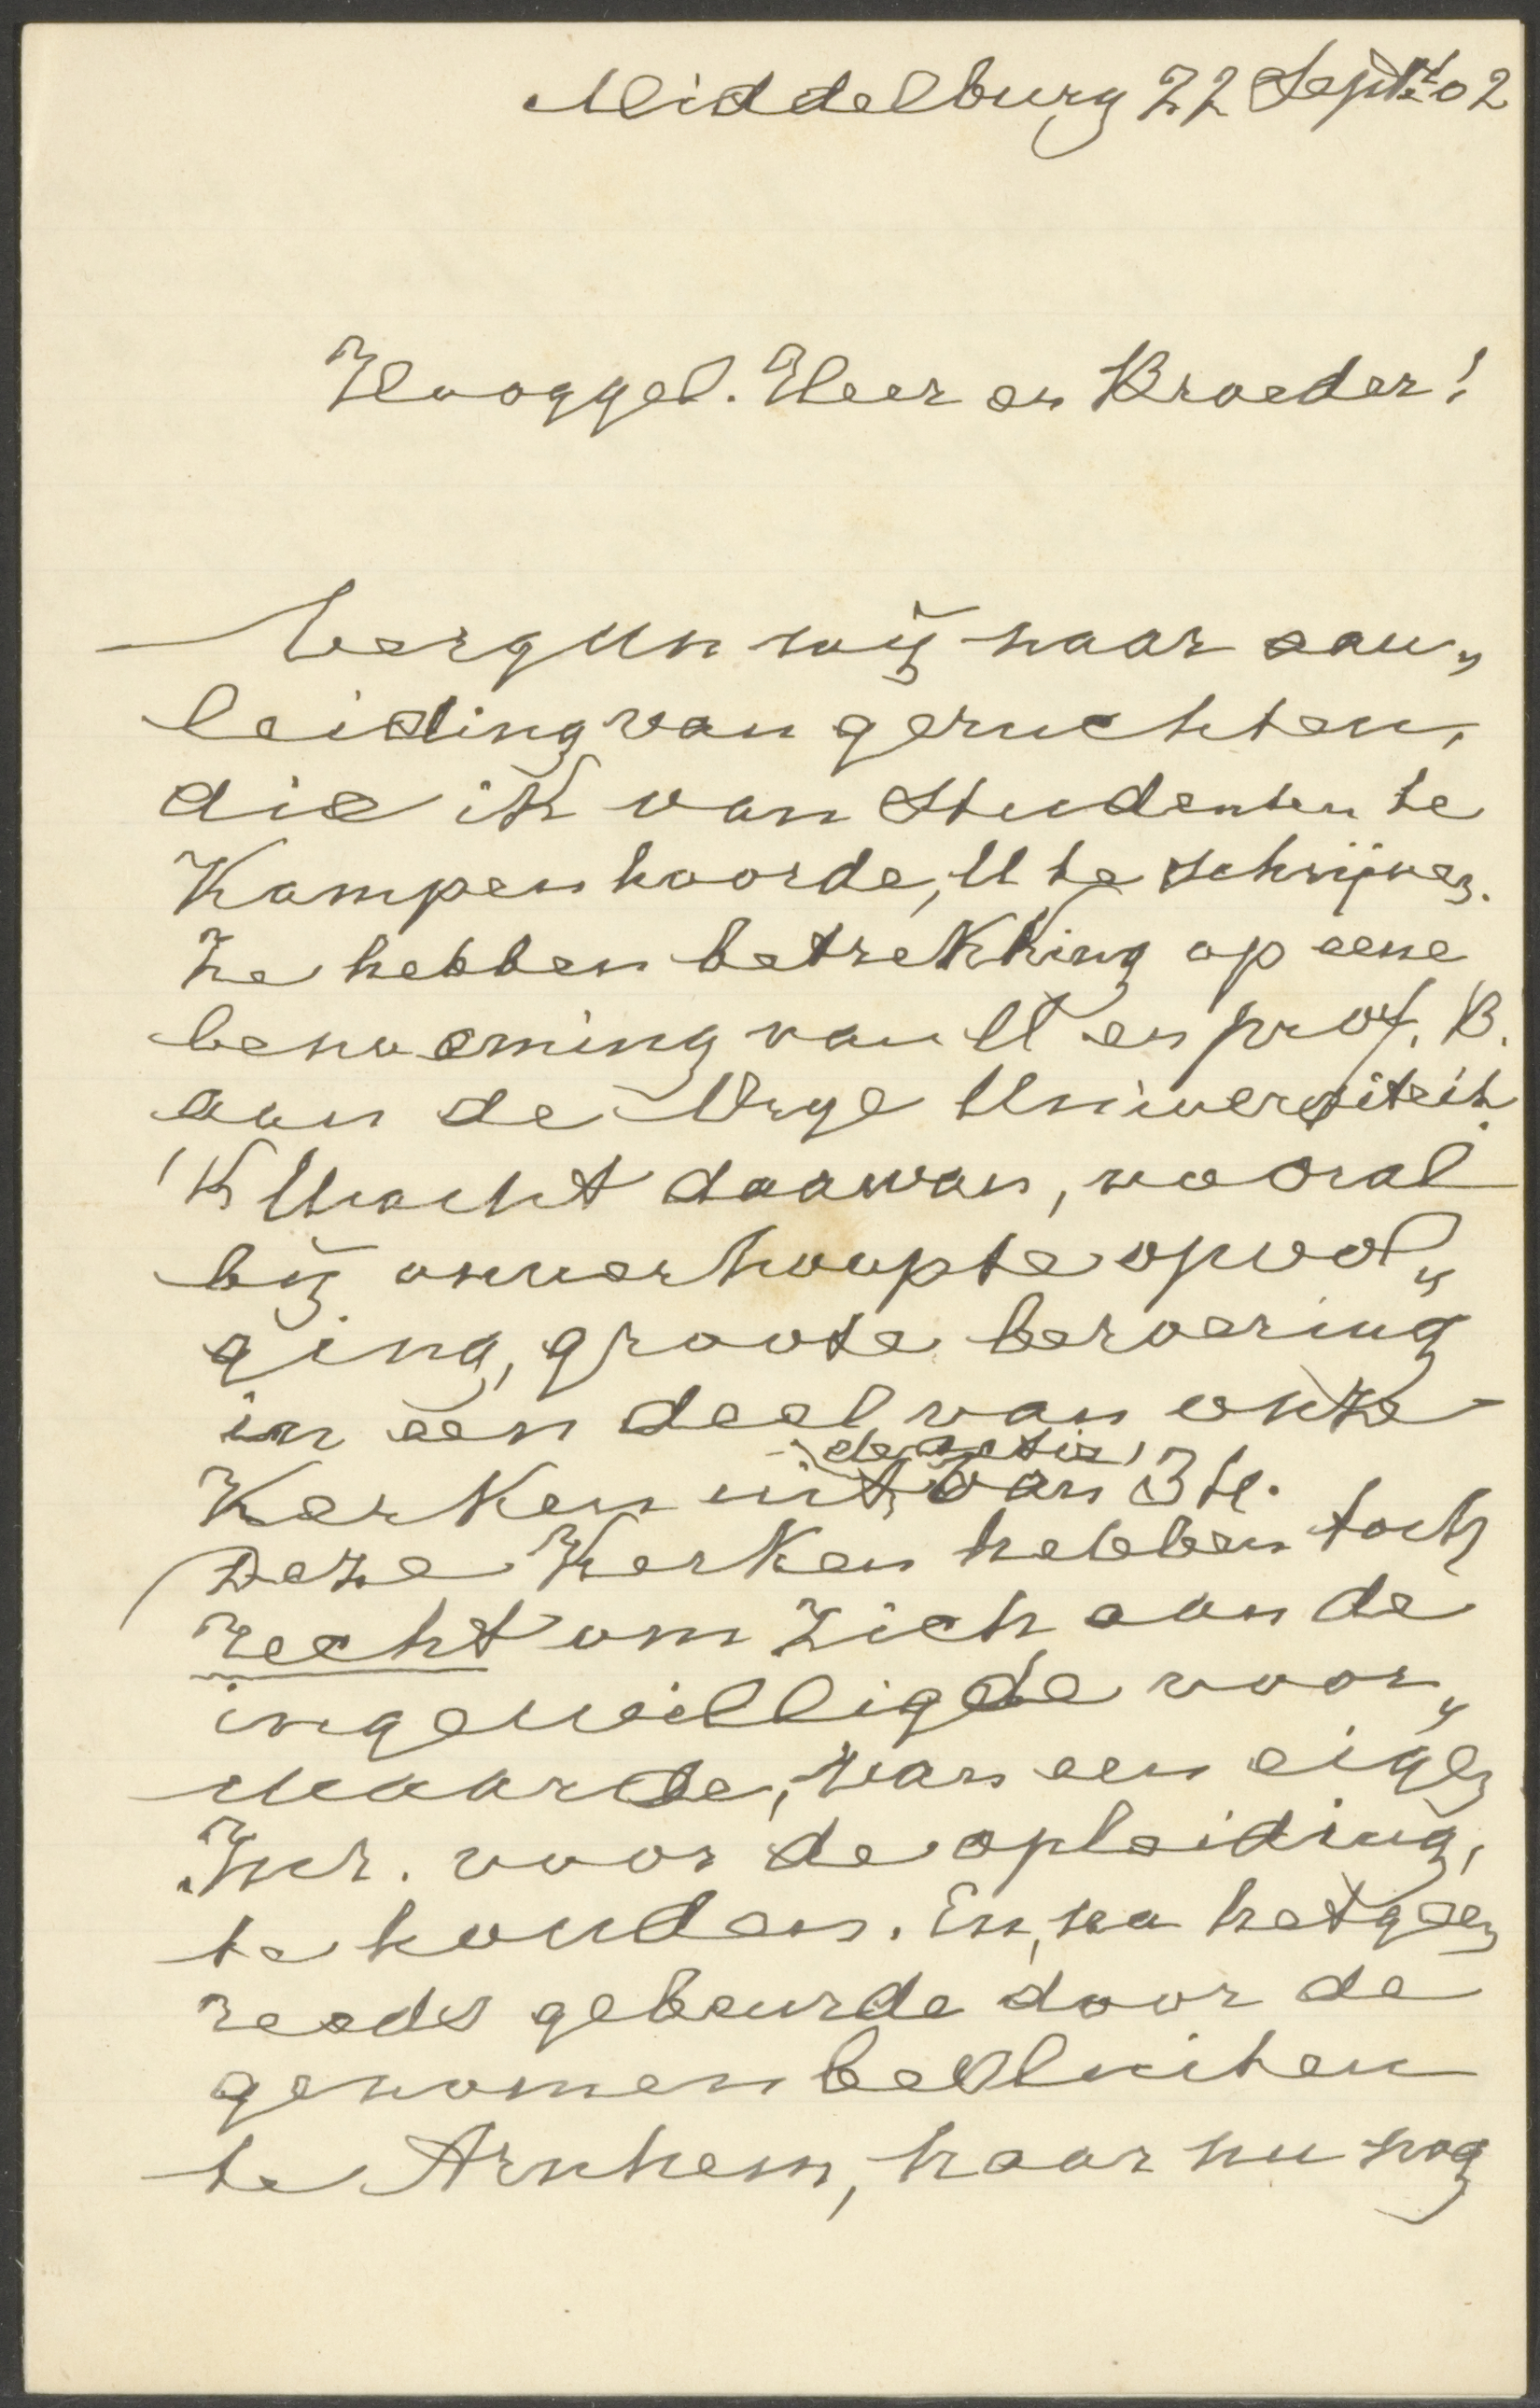 Middelburg 22 Sept. 02
Hooggel. Heer en Broeder!
Vergun mij naar aan„
leiding van geruchten,
die ik van studenten te
Kampen hoorde, U te schrijven.
Ze hebben betrekking op eene
benoeming van U en prof. B.
aan de Vrye Universiteit.
'K Wacht daarvan, vooral
bij onverhoopte opvol„
ging, groote beroering
in een deel van onze
de actie
Kerken uit van 34.
Deze Kerken hebben toch
recht om zich aan de
ingewilligde voor„
waarde, van een eigen
Inr. voor de opleiding,
te houden. En, na hetgeen
reeds gebeurde door de
genomen besluiten
te Arnhem, haar nu nog